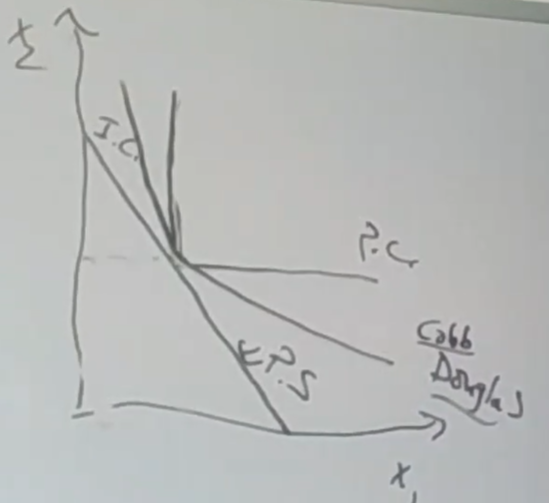 I.C.
P.C.
Cobb
Douglas
P.S
X₁